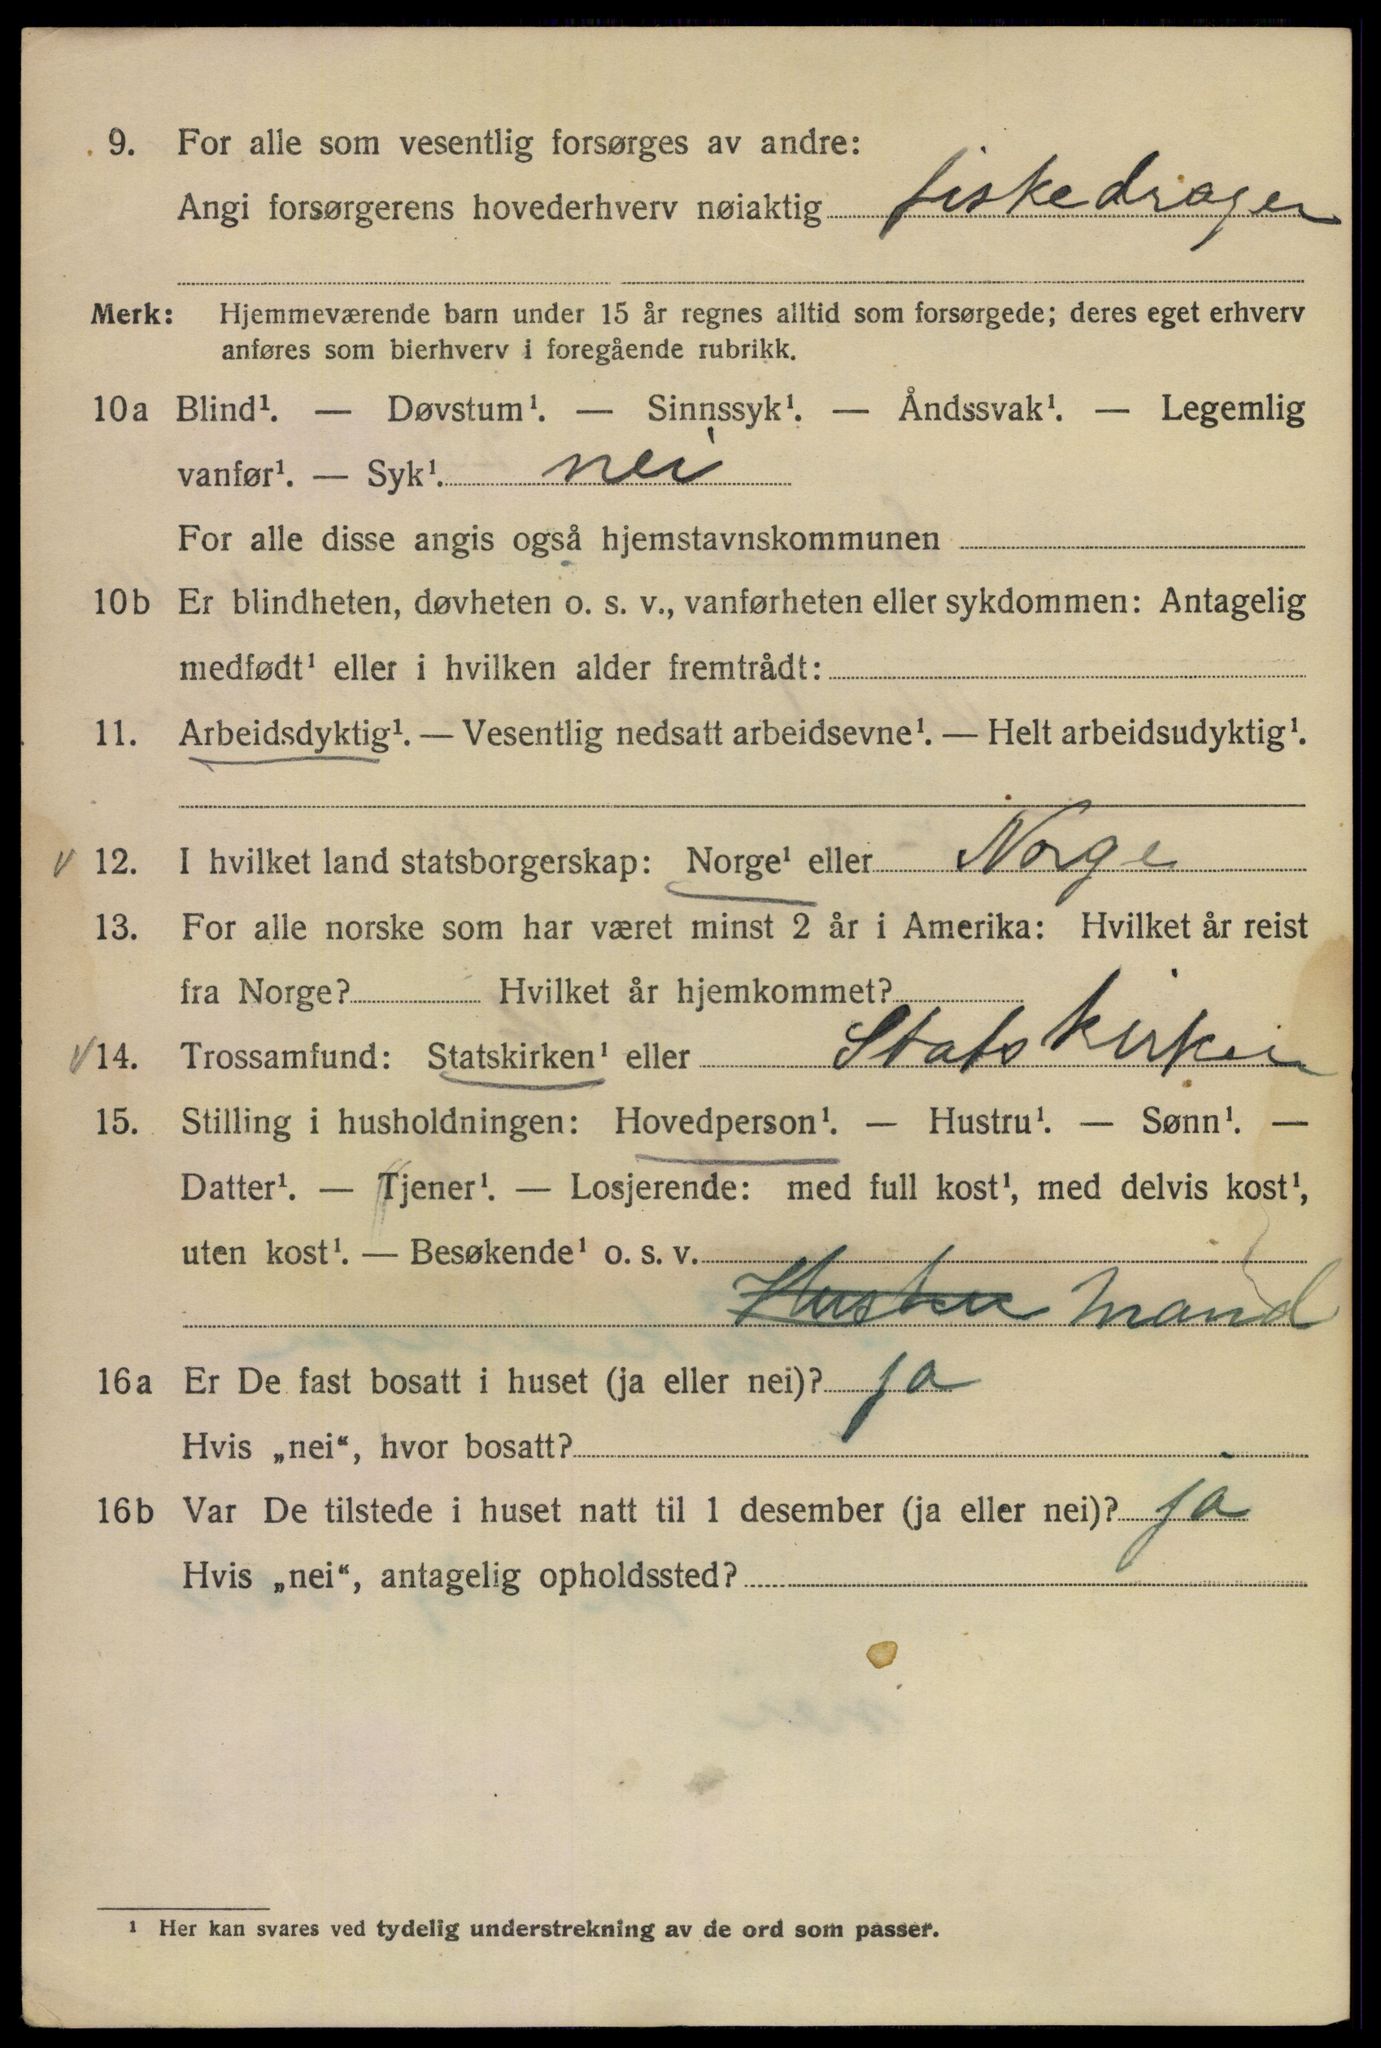 9. For alle som vesentlig forsørges av andre:
Angi forsørgerens hovederhverv nøiaktig fiskedrager
Merk: Hjemmeværende barn under 15 år regnes alltid som forsørgede; deres eget erhverv
anføres som bierhverv i foregående rubrikk.
10a Blind¹. — Døvstum¹. — Sinnssyk¹. — Åndssvak¹. — Legemlig
vanfør¹. — Syk¹. nei
For alle disse angis også hjemstavnskommunen
10b Er blindheten, døvheten o. s. v., vanførheten eller sykdommen: Antagelig
medfødt¹ eller i hvilken alder fremtrådt:
11. Arbeidsdyktig¹. — Vesentlig nedsatt arbeidsevne¹. — Helt arbeidsudyktig¹.
12. I hvilket land statsborgerskap: Norge¹ eller Norge
13. For alle norske som har været minst 2 år i Amerika: Hvilket år reist
fra Norge? Hvilket år hjemkommet?
14. Trossamfund: Statskirken¹ eller Statskirken
15. Stilling i husholdningen: Hovedperson¹. — Hustru¹. — Sønn¹. —
Datter¹. — Tjener¹. — Losjerende: med full kost¹, med delvis kost¹,
uten kost¹. — Besøkende¹ o. s. v.
Hustru Mand
16a Er De fast bosatt i huset (ja eller nei)? ja
Hvis „nei“, hvor bosatt?
16b Var De tilstede i huset natt til 1 desember (ja eller nei)? ja
Hvis „nei“, antagelig opholdssted?
¹ Her kan svares ved tydelig understrekning av de ord som passer.